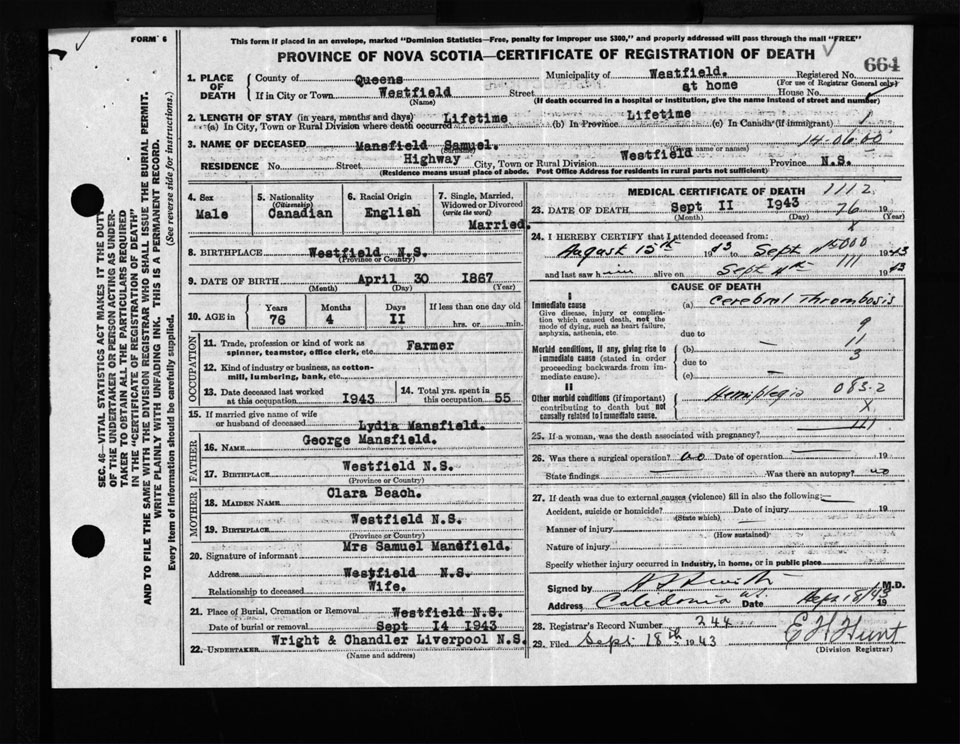 FORM 6
This form if placed in an envelope, marked "Dominion Statistics—Free, penalty for improper use $300," and properly addressed will pass through the mail "FREE"
PROVINCE OF NOVA SCOTIA—CERTIFICATE OF REGISTRATION OF DEATH
664
1. PLACE OF DEATH
County of Queens Municipality of Westfield. Registered No.
(For use of Registrar General only)
If in City or Town Westfield Street at home House No.
(Name) (If death occurred in a hospital or institution, give the name instead of street and number)
2. LENGTH OF STAY (in years, months and days)
(a) In City, Town or Rural Division where death occurred Lifetime (b) In Province Lifetime (c) In Canada (if immigrant)
3. NAME OF DECEASED Mansfield Samuel. 14-06.00
(Surname) (Given name or names)
RESIDENCE No. Street Highway City, Town or Rural Division Westfield Province N.S.
(Residence means usual place of abode. Post Office Address for residents in rural parts not sufficient)
4. Sex
Male
5. Nationality
(Citizenship)
Canadian
6. Racial Origin
English
7. Single, Married, Widowed or Divorced
(write the word)
Married.
8. BIRTHPLACE Westfield N.S.
(Province or Country)
9. DATE OF BIRTH April 30 1867
(Month) (Day) (Year)
10. AGE in
Years 76
Months 4
Days II
If less than one day old
hrs. or min.
OCCUPATION
11. Trade, profession or kind of work as spinner, teamster, office clerk, etc. Farmer
12. Kind of industry or business, as cotton-mill, lumbering, bank, etc.
13. Date deceased last worked at this occupation I943
14. Total yrs. spent in this occupation 55
15. If married give name of wife or husband of deceased Lydia Mansfield.
FATHER
16. NAME George Mansfield.
17. BIRTHPLACE Westfield N.S.
(Province or Country)
MOTHER
18. MAIDEN NAME Clara Beach.
19. BIRTHPLACE Westfield N.S.
(Province or Country)
20. Signature of informant Mrs Samuel Mansfield.
Address Westfield N.S.
Relationship to deceased Wife.
21. Place of Burial, Cremation or Removal Westfield N.S.
Date of burial or removal Sept I4 I943
22. UNDERTAKER Wright & Chandler Liverpool N.S.
(Name and address)
MEDICAL CERTIFICATE OF DEATH 1112
23. DATE OF DEATH Sept II I943 76 19
(Month) (Day) (Year)
24. I HEREBY CERTIFY that I attended deceased from:
August 15th 1943 to Sept 1943
and last saw him alive on Sept 1943
CAUSE OF DEATH
I
Immediate cause
Give disease, injury or complication which caused death, not the mode of dying, such as heart failure, asphyxia, asthenia, etc.
(a) Cerebral Thrombosis
due to 9
Morbid conditions, if any, giving rise to immediate cause (stated in order proceeding backwards from immediate cause).
(b) 11
due to 3
(c)
II
Other morbid conditions (if important) contributing to death but not causally related to immediate cause.
Hemiplegia 083.2
X
25. If a woman, was the death associated with pregnancy?
26. Was there a surgical operation? no Date of operation 19
State findings Was there an autopsy? no
27. If death was due to external causes (violence) fill in also the following:
Accident, suicide or homicide? Date of injury 19
(State which)
Manner of injury
(How sustained)
Nature of injury
Specify whether injury occurred in industry, in home, or in public place
Signed by M.D.
Address Caledonia Date Sept 18/43 19
28. Registrar's Record Number 244
29. Filed Sept. 18th 1943 E H Hunt
(Division Registrar)
SEC. 46—VITAL STATISTICS ACT MAKES IT THE DUTY OF THE UNDERTAKER OR PERSON ACTING AS UNDERTAKER TO OBTAIN ALL THE PARTICULARS REQUIRED IN THE "CERTIFICATE OF REGISTRATION OF DEATH"
AND TO FILE THE SAME WITH THE DIVISION REGISTRAR WHO SHALL ISSUE THE BURIAL PERMIT.
WRITE PLAINLY WITH UNFADING INK. THIS IS A PERMANENT RECORD.
Every item of information should be carefully supplied. (See reverse side for instructions.)